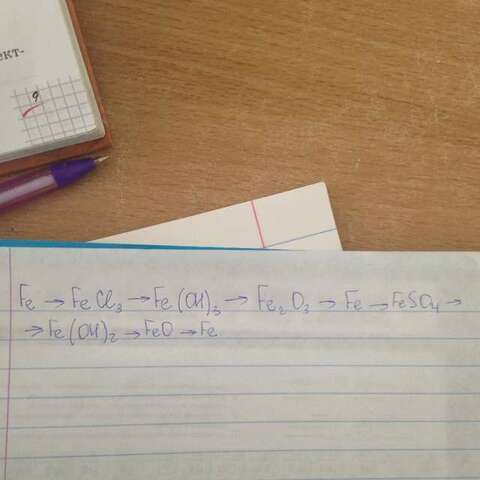 ект-
9
Fe → FeCl₃ → Fe(OH)₃ → Fe₂O₃ → Fe → FeSO₄ →
→ Fe(OH)₂ → FeO → Fe